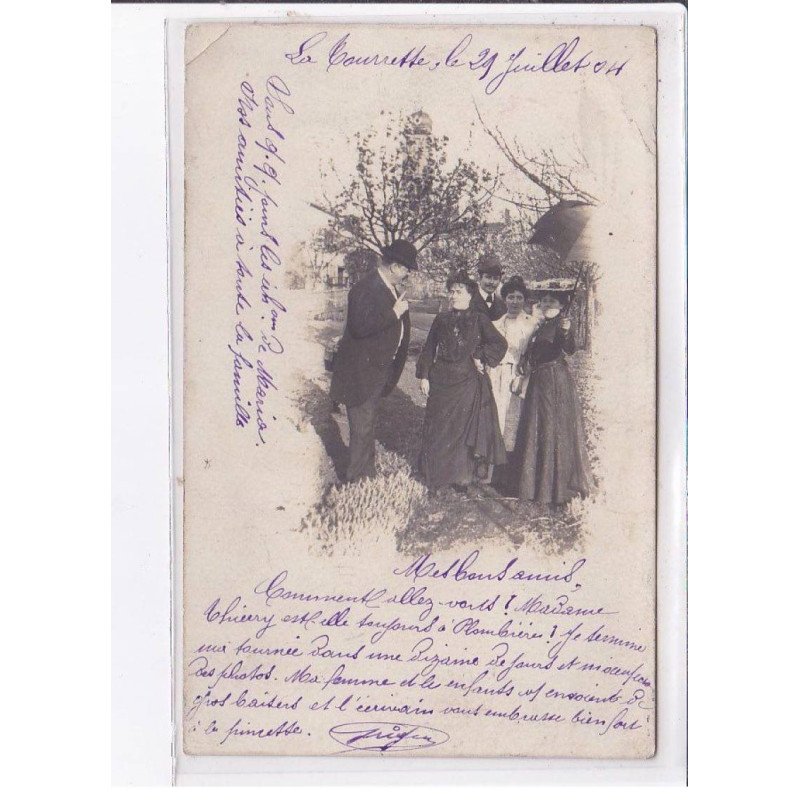 La Tourrette, le 29 Juillet 04
Vous q.q. fours les
de Maria.
Nos amitiés à toute la famille
Mes bons amis,
Comment allez-vous ? Madame
Thiéry est elle toujours à Plombières ? Je termine
ma tournée dans une dizaine de jours et
des photos. Ma femme et les enfants vs envoient de
gros baisers et l'écrivain vous embrasse bien fort
à la pincette.